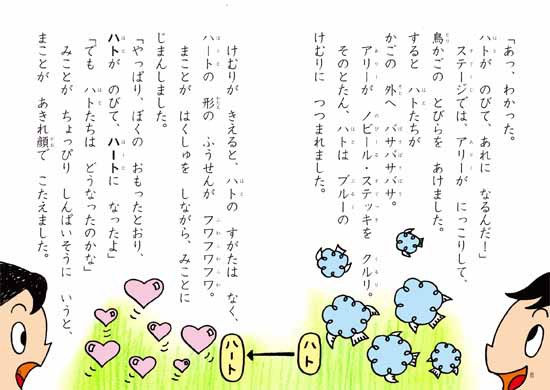 「あっ、わかった。
ハトが のびて、あれに なるんだ！」
ステージでは、アリーが にっこりして、
鳥かごの とびらを あけました。
すると ハトたちが
かごの 外へ バサバサバサ。
アリーが ノビール・ステッキを クルリ。
そのとたん、ハトは ブルーの
けむりに つつまれました。
けむりが きえると、ハトの すがたは なく、
ハートの 形の ふうせんが フワフワフワ。
まことが はくしゅを しながら、みことに
じまんしました。
「やっぱり、ぼくの おもったとおり、
ハトが のびて、ハートに なったよ」
「でも ハトたちは どうなったのかな」
みことが ちょっぴり しんぱいそうに いうと、
まことが あきれ顔で こたえました。
ハト
ハート